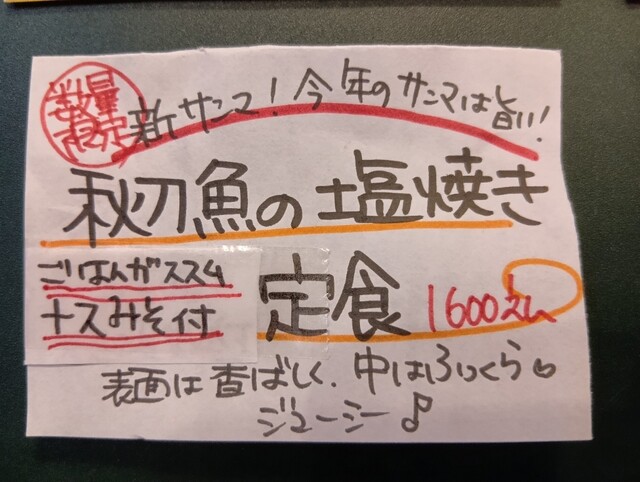 数量
限定
新サンマ！今年のサンマは旨い！
秋刀魚の塩焼き
定食 1600えん
ごはんがススム
ナスみそ付
表面は香ばしく、中はふっくら♡
ジューシー♪